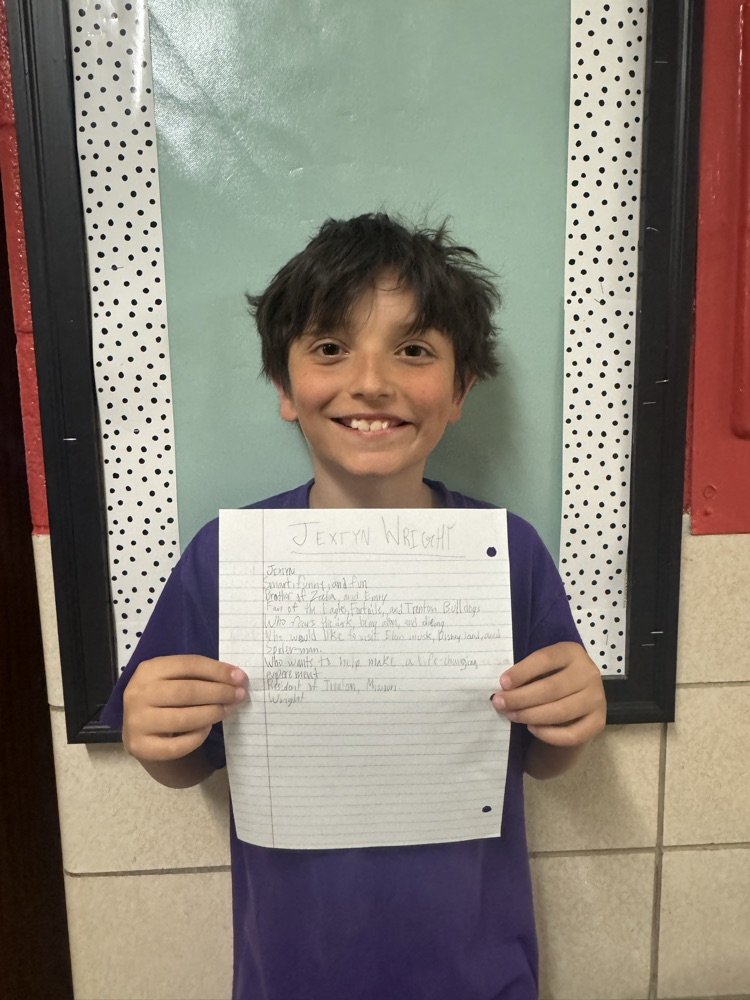 JEXTYN WRIGHT
Jextyn
Smart, funny, and fun
Brother of and Emry
Fan of the Eagles, football, and Trenton Bulldogs
Who fears the dark, being alone, and dieing
Who would like to visit Elon musk, Disney land, and
Spiderman.
Who wants to help make a life-changing
experiment
Resident of Trenton,
Wright